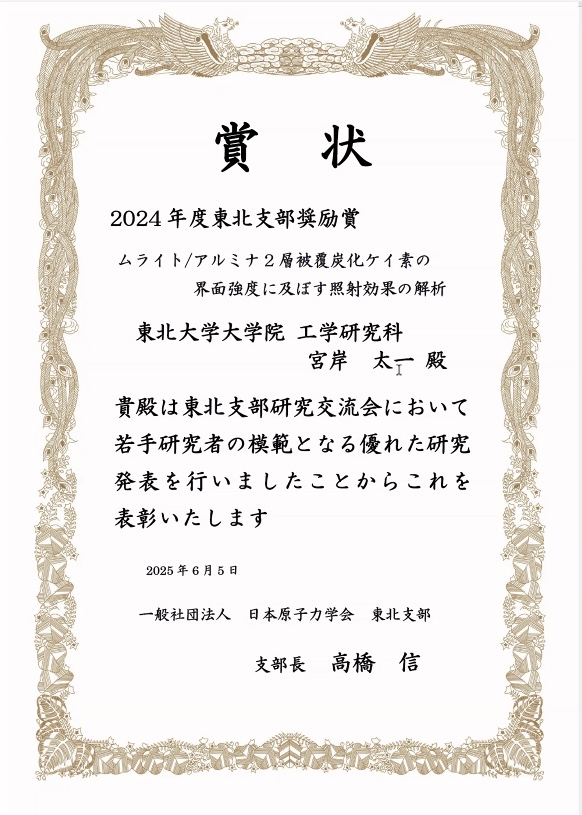 賞 状
2024年度東北支部奨励賞
ムライト/アルミナ2層被覆炭化ケイ素の
界面強度に及ぼす照射効果の解析
東北大学大学院 工学研究科
宮岸 太一 殿
貴殿は東北支部研究交流会において
若手研究者の模範となる優れた研究
発表を行いましたことからこれを
表彰いたします
2025年6月5日
一般社団法人 日本原子力学会 東北支部
支部長 高橋 信